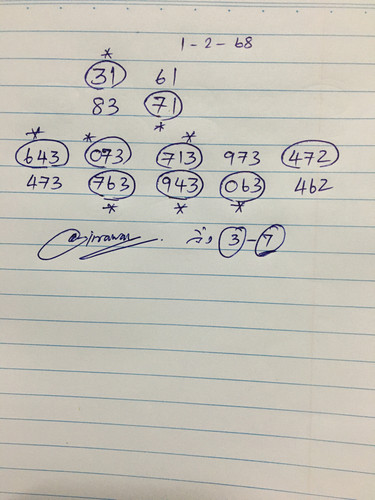 1 - 2 - 68
31 61
83 71
643 073 713 973 472
473 763 943 063 462
3 - 7